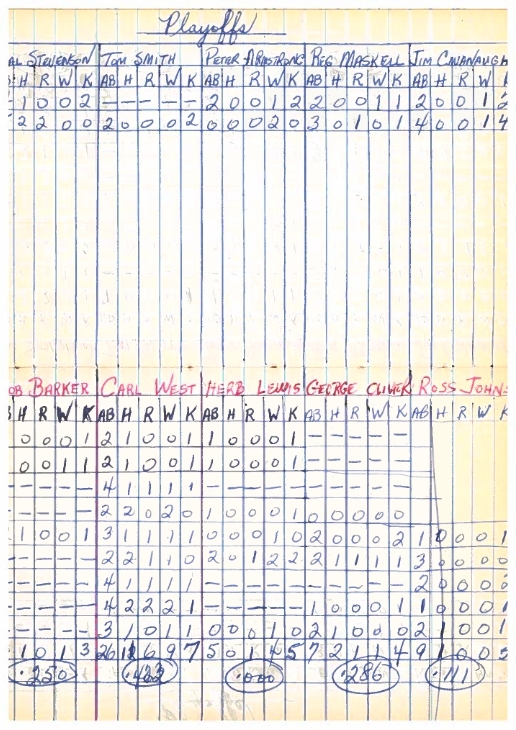 Playoffs
AL STEVENSON TOM SMITH PETER ARMSTRONG REG MASKELL JIM CAVANAUGH
H R W K AB H R W K AB H R W K AB H R W K AB H R W
1 0 0 2 - - - - - 2 0 0 1 2 2 0 0 1 1 2 0 0 1 2
2 2 0 0 2 0 0 0 2 0 0 0 2 0 3 0 1 0 1 4 0 0 1 4
OB BARKER CARL WEST HERB LEWIS GEORGE OLIVER ROSS JOHNS
H R W K AB H R W K AB H R W K AB H R W K AB H R W K
0 0 0 1 2 1 0 0 1 1 0 0 0 1 - - - - -
0 0 1 1 2 1 0 0 1 1 0 0 0 1 - - - - -
- - - - 4 1 1 1 1 - - - - - - - - - -
- - - - 2 2 0 2 0 1 0 0 0 1 0 0 0 0 0
1 0 0 1 3 1 1 1 1 0 0 0 1 0 2 0 0 0 2 1 0 0 0 1
- - - - 2 2 1 1 0 2 0 1 2 2 2 1 1 1 1 3 0 0 0 0
- - - - 4 1 1 1 1 - - - - - - - - - - 2 0 0 0 0
- - - - 4 2 2 2 1 - - - - - 1 0 0 0 1 1 0 0 0 1
- - - - 3 1 0 1 1 0 0 0 1 0 2 1 0 0 0 2 1 0 0 1
1 0 1 3 26 6 9 7 5 0 1 4 5 7 2 1 1 4 9 1 0 0
.250 .000 .286 .111